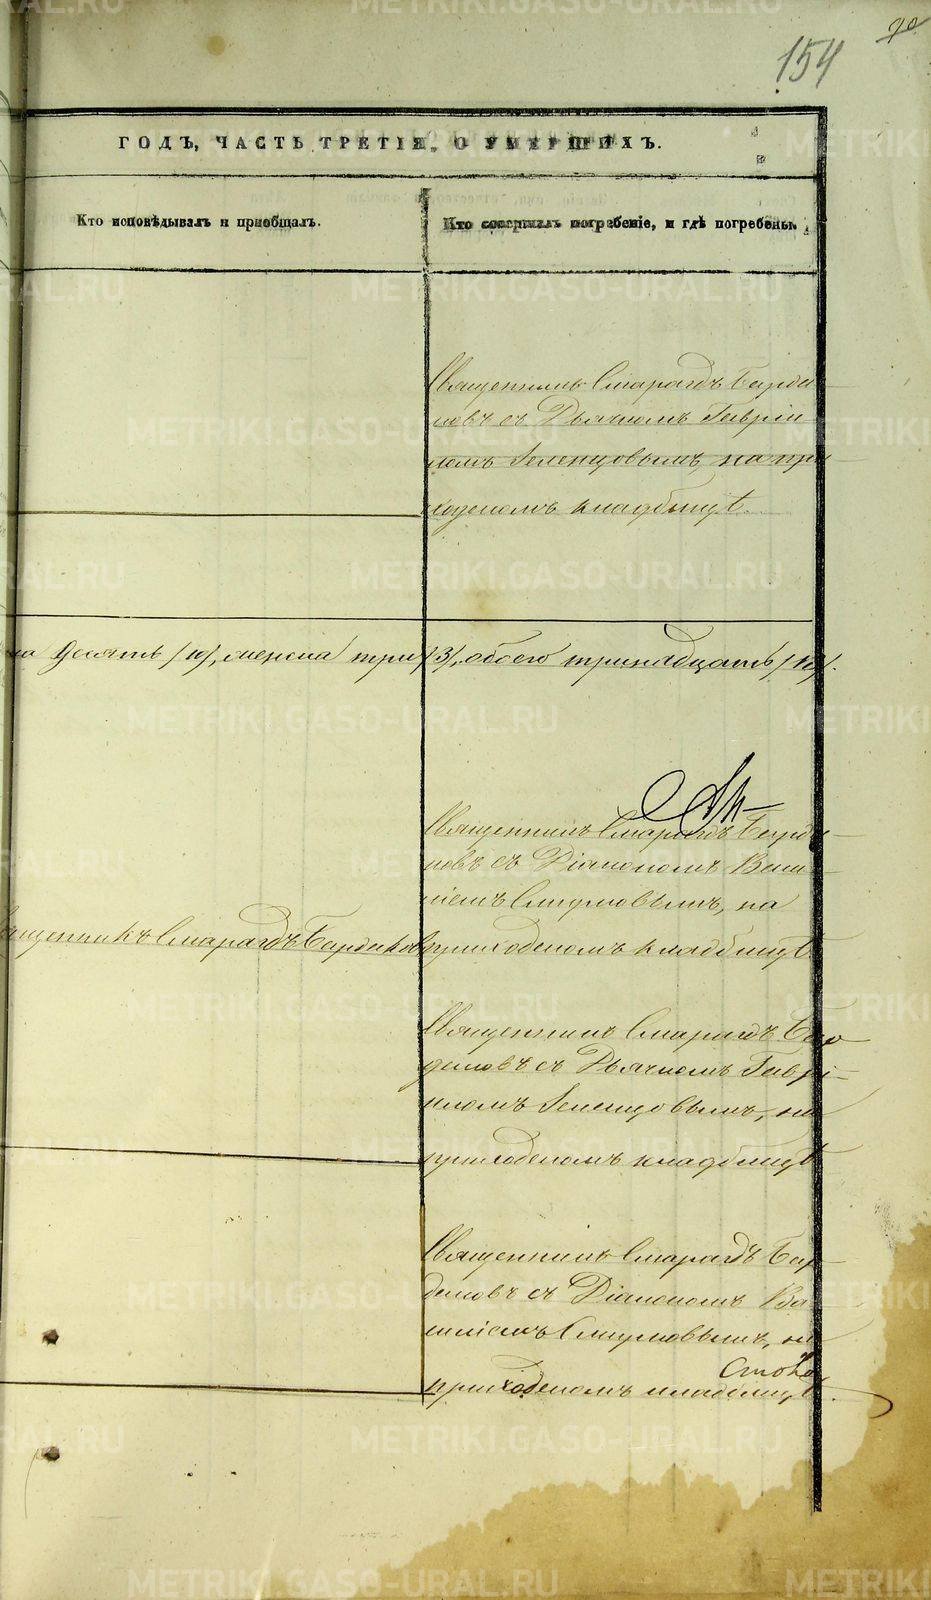 154
ГОДЪ, ЧАСТЬ ТРЕТІЯ, О УМЕРШИХЪ.
Кто исповѣдывалъ и пріобщалъ.
Кто совершалъ погребеніе, и гдѣ погребены.
Священникъ Смарагдъ Бирдю-
ковъ съ Дьячкомъ Гавріи-
ломъ Зеленцовымъ, на при-
ходскомъ кладбищѣ.
на десять /10/, женска три /3/, обоего тринадцать /13/.
Священникъ Смарагдъ
съ Діакономъ Васи-
ліемъ Смирновымъ, на
приходскомъ кладбищѣ.
Священникъ Смарагдъ
Священникъ Смарагдъ
съ Дьячкомъ Гаврі-
иломъ Зеленцовымъ, на
приходскомъ кладбищѣ
Священникъ Смарагдъ
съ Діакономъ Ва-
силіемъ Смирновымъ, на
приходскомъ кладбищѣ.
METRIKI.GASO-URAL.RU